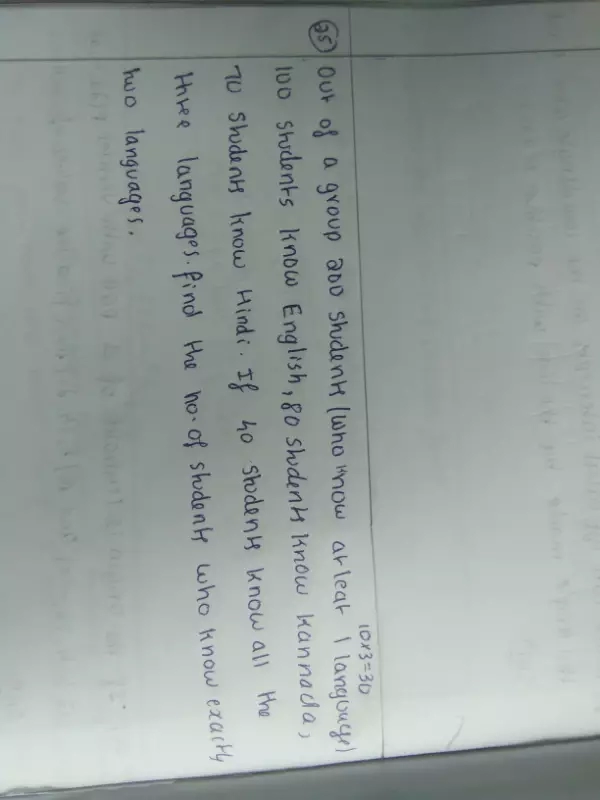 10x3=30
(25) Out of a group 200 student (who know atleat 1 language)
100 students know English, 80 students know kannada,
70 students know Hindi. If 40 students know all the
three languages. find the no. of students who know exactly
two languages.